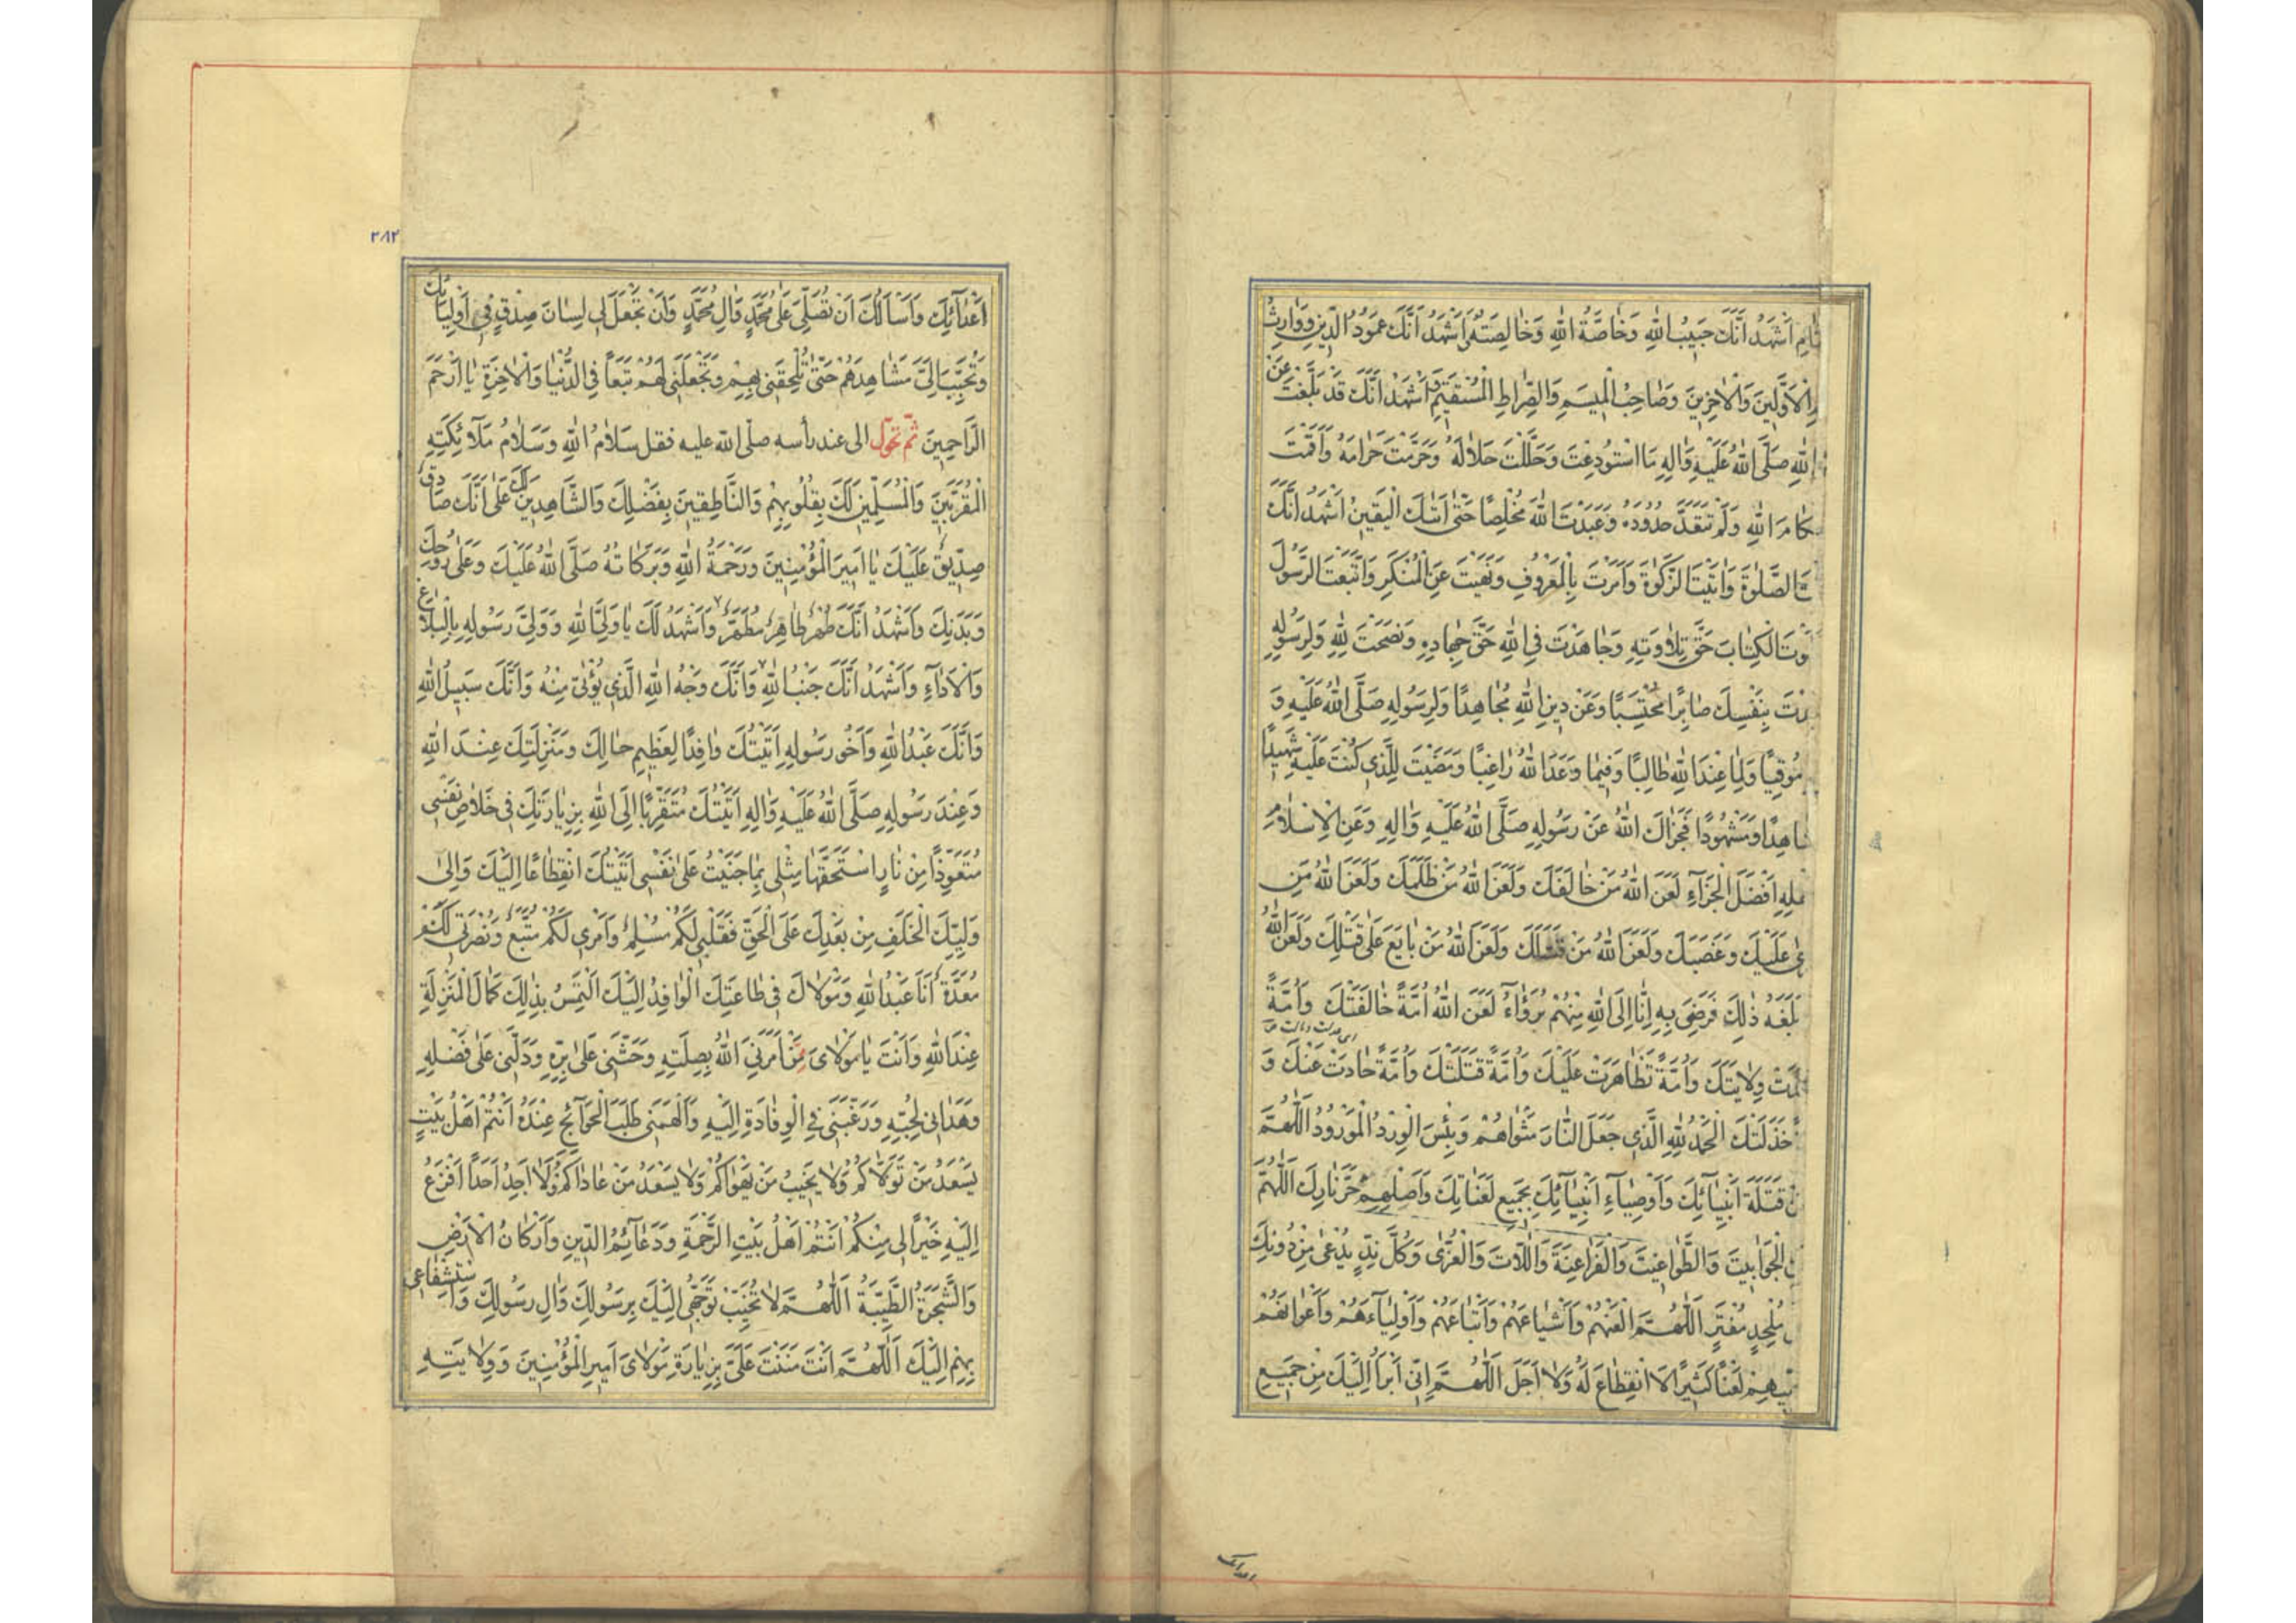 اَشْهَدُ اَنَّكَ حَبِيبُ اللّٰهِ وَخَاصَّةُ اللّٰهِ وَخَالِصَتُهُ اَشْهَدُ اَنَّكَ عَمُودُ الدّينِ وَوٰارِثُ
الْاَوَّلِينَ وَالْاٰخِرِينَ وَصَاحِبُ الْمِيسَمِ وَالصِّرٰاطِ الْمُسْتَقِيمِ اَشْهَدُ اَنَّكَ قَدْ بَلَّغْتَ عَنْ
اللّٰهِ صَلَّى اللّٰهُ عَلَيْهِ وَاٰلِهِ مَا اسْتُودِعْتَ وَحَلَّلْتَ حَلَالَهُ وَحَرَّمْتَ حَرَامَهُ وَاَقَمْتَ
اللّٰهِ وَلَمْ تَتَعَدَّ حُدُودَهُ وَعَبَدْتَ اللّٰهَ مُخْلِصًا حَتّٰى اَتٰكَ الْيَقِينُ اَشْهَدُ اَنَّكَ
الصَّلٰوةَ وَاٰتَيْتَ الزَّكٰوةَ وَاَمَرْتَ بِالْمَعْرُوفِ وَنَهَيْتَ عَنِ الْمُنْكَرِ وَاتَّبَعْتَ الرَّسُولَ
الْكِتٰابَ حَقَّ تِلٰاوَتِهِ وَجٰاهَدْتَ فِي اللّٰهِ حَقَّ جِهٰادِهِ وَنَصَحْتَ لِلّٰهِ وَلِرَسُولِهِ
بِنَفْسِكَ صٰابِرًا مُحْتَسِبًا وَعَنْ دِينِ اللّٰهِ مُجٰاهِدًا وَلِرَسُولِهِ صَلَّى اللّٰهُ عَلَيْهِ وَ
مُوقِيًا وَلِمٰا عِنْدَ اللّٰهِ طٰالِبًا وَفِيمٰا وَعَدَ اللّٰهُ رٰاغِبًا وَمَضَيْتَ لِلَّذِي كُنْتَ عَلَيْهِ شَهِيدًا
وَمَشْهُودًا فَجَزٰاكَ اللّٰهُ عَنْ رَسُولِهِ صَلَّى اللّٰهُ عَلَيْهِ وَاٰلِهِ وَعَنِ الْاِسْلٰامِ
اَفْضَلَ الْجَزٰاءِ لَعَنَ اللّٰهُ مَنْ خٰالَفَكَ وَلَعَنَ اللّٰهُ مَنْ ظَلَمَكَ وَلَعَنَ اللّٰهُ مَنِ
عَلَيْكَ وَغَصَبَكَ وَلَعَنَ اللّٰهُ مَنْ قَتَلَكَ وَلَعَنَ اللّٰهُ مَنْ بٰايَعَ عَلٰى قَتْلِكَ وَلَعَنَ اللّٰهُ
بَلَغَهُ ذٰلِكَ فَرَضِيَ بِهِ اِنّٰا اِلَى اللّٰهِ مِنْهُمْ بُرَءٰاءُ لَعَنَ اللّٰهُ اُمَّةً خٰالَفَتْكَ وَاُمَّةً
وِلٰايَتَكَ وَاُمَّةً تَظٰاهَرَتْ عَلَيْكَ وَاُمَّةً قَتَلَتْكَ وَاُمَّةً حٰادَتْ عَنْكَ وَ
خَذَلَتْكَ الْحَمْدُ لِلّٰهِ الَّذِي جَعَلَ النّٰارَ مَثْوٰاهُمْ وَبِئْسَ الْوِرْدُ الْمَوْرُودُ اَللّٰهُمَّ
قَتَلَةَ اَنْبِيٰائِكَ وَاَوْصِيٰاءِ اَنْبِيٰائِكَ بِجَمِيعِ لَعَنٰاتِكَ وَاَصْلِهِمْ حَرَّ نٰارِكَ اَللّٰهُمَّ
الْجَوٰابِيتَ وَالطَّوٰاغِيتَ وَالْفَرٰاعِنَةَ وَاللّٰاتَ وَالْعُزّٰى وَكُلَّ نِدٍّ يُدْعٰى مِنْ دُونِكَ
مُلْحِدٍ مُفْتَرٍ اَللّٰهُمَّ الْعَنْهُمْ وَاَشْيٰاعَهُمْ وَاَتْبٰاعَهُمْ وَاَوْلِيٰاءَهُمْ وَاَعْوٰانَهُمْ
لَعْنًا كَثِيرًا لَا انْقِطٰاعَ لَهُ وَلٰا اَجَلَ اَللّٰهُمَّ اِنّي اَبْرَأُ اِلَيْكَ مِنْ جَمِيعِ
٢٨٢
اَعْدٰائِكَ وَاَسْاَلُكَ اَنْ تُصَلِّيَ عَلٰى مُحَمَّدٍ وَاٰلِ مُحَمَّدٍ وَاَنْ تَجْعَلَ لِي لِسٰانَ صِدْقٍ فِي اَوْلِيٰائِكَ
وَتُحَبِّبَ اِلَيَّ مَشٰاهِدَهُمْ حَتّٰى تُلْحِقَنِي بِهِمْ وَتَجْعَلَنِي لَهُمْ تَبَعًا فِي الدُّنْيٰا وَالْاٰخِرَةِ يٰا اَرْحَمَ
الرّٰاحِمِينَ ثم تحوّل الى عند رأسه صلّى اللّه عليه فقل سَلٰامُ اللّٰهِ وَسَلٰامُ مَلٰائِكَتِهِ
الْمُقَرَّبِينَ وَالْمُسَلِّمِينَ لَكَ بِقُلُوبِهِمْ وَالنّٰاطِقِينَ بِفَضْلِكَ وَالشّٰاهِدِينَ لَكَ عَلٰى اَنَّكَ صٰادِقٌ
صِدِّيقٌ عَلَيْكَ يٰا اَمِيرَ الْمُؤْمِنِينَ وَرَحْمَةُ اللّٰهِ وَبَرَكٰاتُهُ صَلَّى اللّٰهُ عَلَيْكَ وَعَلٰى رُوحِكَ
وَبَدَنِكَ وَاَشْهَدُ اَنَّكَ طُهْرٌ طٰاهِرٌ مُطَهَّرٌ وَاَشْهَدُ لَكَ يٰا وَلِيَّ اللّٰهِ وَوَلِيَّ رَسُولِهِ بِالْبَلٰاغِ
وَالْاَدٰاءِ وَاَشْهَدُ اَنَّكَ جَنْبُ اللّٰهِ وَاَنَّكَ وَجْهُ اللّٰهِ الَّذِي يُؤْتٰى مِنْهُ وَاَنَّكَ سَبِيلُ اللّٰهِ
وَاَنَّكَ عَبْدُ اللّٰهِ وَاَخُو رَسُولِهِ اَتَيْتُكَ وٰافِدًا لِعَظِيمِ حٰالِكَ وَمَنْزِلَتِكَ عِنْدَ اللّٰهِ
وَعِنْدَ رَسُولِهِ صَلَّى اللّٰهُ عَلَيْهِ وَاٰلِهِ اَتَيْتُكَ مُتَقَرِّبًا اِلَى اللّٰهِ بِزِيٰارَتِكَ فِي خَلٰاصِ نَفْسِي
مُتَعَوِّذًا مِنْ نٰارٍ اسْتَحَقَّهٰا مِثْلِي بِمٰا جَنَيْتُ عَلٰى نَفْسِي اَتَيْتُكَ انْقِطٰاعًا اِلَيْكَ وَاِلٰى
وَلِيِّكَ الْخَلَفِ مِنْ بَعْدِكَ عَلَى الْحَقِّ فَقَلْبِي لَكُمْ مُسْلِمٌ وَاَمْرِي لَكُمْ مُتَّبِعٌ وَنُصْرَتِي لَكُمْ
مُعَدَّةٌ اَنَا عَبْدُ اللّٰهِ وَمَوْلٰاكَ فِي طٰاعَتِكَ الْوٰافِدُ اِلَيْكَ اَلْتَمِسُ بِذٰلِكَ كَمٰالَ الْمَنْزِلَةِ
عِنْدَ اللّٰهِ وَاَنْتَ يٰا مَوْلٰايَ مَنْ اَمَرَنِي اللّٰهُ بِصِلَتِهِ وَحَثَّنِي عَلٰى بِرِّهِ وَدَلَّنِي عَلٰى فَضْلِهِ
وَهَدٰانِي لِحُبِّهِ وَرَغَّبَنِي فِي الْوِفٰادَةِ اِلَيْهِ وَاَلْهَمَنِي طَلَبَ الْحَوٰائِجِ عِنْدَهُ اَنْتُمْ اَهْلُ بَيْتٍ
يَسْعَدُ مَنْ تَوَلّٰاكُمْ وَلٰا يَخِيبُ مَنْ يَهْوٰاكُمْ وَلٰا يَسْعَدُ مَنْ عٰادٰاكُمْ وَلٰا اَجِدُ اَحَدًا اَفْزَعُ
اِلَيْهِ خَيْرًا لِي مِنْكُمْ اَنْتُمْ اَهْلُ بَيْتِ الرَّحْمَةِ وَدَعٰائِمُ الدّينِ وَاَرْكٰانُ الْاَرْضِ
وَالشَّجَرَةُ الطَّيِّبَةُ اَللّٰهُمَّ لٰا تُخَيِّبْ تَوَجُّهِي اِلَيْكَ بِرَسُولِكَ وَاٰلِ رَسُولِكَ وَاسْتِشْفٰاعِي
بِهِمْ اِلَيْكَ اَللّٰهُمَّ اَنْتَ مَنَنْتَ عَلَيَّ بِزِيٰارَةِ مَوْلٰايَ اَمِيرِ الْمُؤْمِنِينَ وَوِلٰايَتِهِ